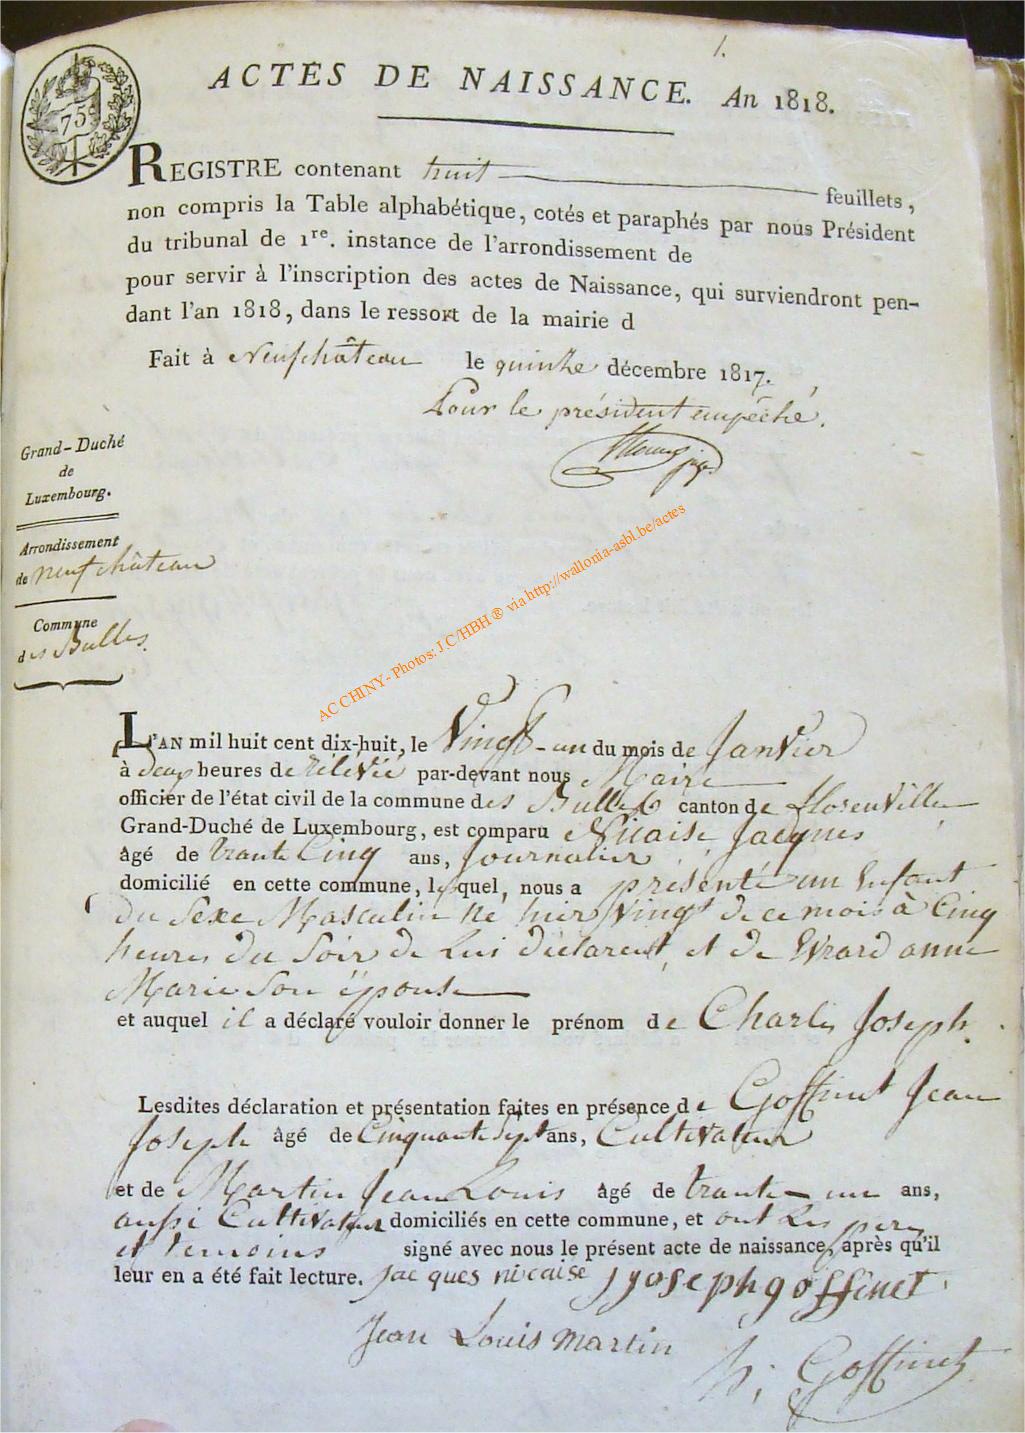 1.
75
ACTES DE NAISSANCE. An 1818.
REGISTRE contenant huit feuillets,
non compris la Table alphabétique, cotés et paraphés par nous Président
du tribunal de 1re. instance de l'arrondissement de
pour servir à l'inscription des actes de Naissance, qui surviendront pen-
dant l'an 1818, dans le ressort de la mairie d
Fait à Neufchâteau le quinze décembre 1817.
Pour le président empêché.
juge
Grand-Duché
de
Luxembourg.
Arrondissement
de neufchâteau
Commune
des Bulles.
AC CHINY - Photos: J.C/HBH® via http://wallonia-asbl.be/actes
L'AN mil huit cent dix-huit, le Vingt-un du mois de Janvier
à deux heures de rélevée par-devant nous Maire
officier de l'état civil de la commune des Bulles canton de florenville
Grand-Duché de Luxembourg, est comparu Nicaise Jacques
âgé de trante Cinq ans, Journalier
domicilié en cette commune, lequel, nous a présenté un Enfant
du Sexe Masculin né hier Vingt de ce mois à Cinq
heures du Soir de Lui déclarent, et de Evrard anne
Marie Son épouse
et auquel il a déclaré vouloir donner le prénom de Charles Joseph.
Lesdites déclaration et présentation faites en présence de Goffinet Jean
Joseph âgé de Cinquante Sept ans, Cultivateur
et de Martin Jean Louis âgé de trante-un ans,
aussi Cultivateur domiciliés en cette commune, et ont Les pere
et temoins signé avec nous le présent acte de naissance, après qu'il
leur en a été fait lecture. Jacques nicaise J Joseph goffinet
Jean Louis martin
h; Goffinet